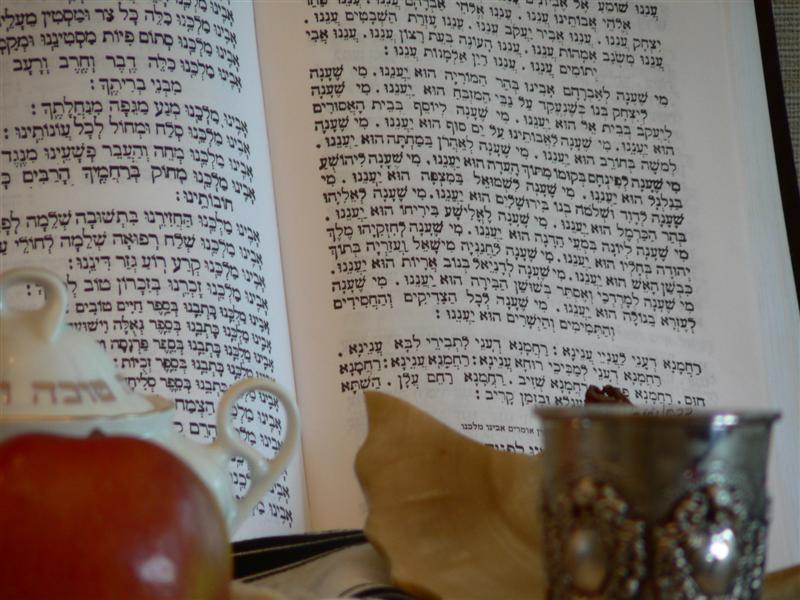 עֲנֵנוּ שׁוֹמֵעַ אֶל אֶבְיוֹנִים
אֱלֹהֵי אֲבוֹתֵינוּ עֲנֵנוּ. עֲנֵנוּ אֱלֹהֵי אַבְרָהָם עֲנֵנוּ. עֲנֵנוּ פַּחַד
יִצְחָק עֲנֵנוּ. עֲנֵנוּ אֲבִיר יַעֲקֹב עֲנֵנוּ. עֲנֵנוּ עֶזְרַת הַשְּׁבָטִים עֲנֵנוּ.
עֲנֵנוּ מִשְׂגַּב אִמָּהוֹת עֲנֵנוּ. עֲנֵנוּ הָעוֹנֶה בְּעֵת רָצוֹן עֲנֵנוּ. עֲנֵנוּ אֲבִי
יְתוֹמִים עֲנֵנוּ. עֲנֵנוּ דַּיַּן אַלְמָנוֹת עֲנֵנוּ:
מִי שֶׁעָנָה לְאַבְרָהָם אָבִינוּ בְּהַר הַמּוֹרִיָּה הוּא יַעֲנֵנוּ. מִי שֶׁעָנָה
לְיִצְחָק בְּנוֹ כְּשֶׁנֶּעֱקַד עַל גַּבֵּי הַמִּזְבֵּחַ הוּא יַעֲנֵנוּ. מִי שֶׁעָנָה
לְיַעֲקֹב בְּבֵית אֵל הוּא יַעֲנֵנוּ. מִי שֶׁעָנָה לְיוֹסֵף בְּבֵית הָאֲסוּרִים
הוּא יַעֲנֵנוּ. מִי שֶׁעָנָה לַאֲבוֹתֵינוּ עַל יַם סוּף הוּא יַעֲנֵנוּ. מִי שֶׁעָנָה
לְמֹשֶׁה בְּחוֹרֵב הוּא יַעֲנֵנוּ. מִי שֶׁעָנָה לְאַהֲרֹן בַּמַּחְתָּה הוּא יַעֲנֵנוּ.
מִי שֶׁעָנָה לְפִינְחָס בְּקוּמוֹ מִתּוֹךְ הָעֵדָה הוּא יַעֲנֵנוּ. מִי שֶׁעָנָה לִיהוֹשֻׁעַ
בַּגִּלְגָּל הוּא יַעֲנֵנוּ. מִי שֶׁעָנָה לִשְׁמוּאֵל בַּמִּצְפָּה הוּא יַעֲנֵנוּ. מִי
שֶׁעָנָה לְדָוִד וּשְׁלֹמֹה בְנוֹ בִּירוּשָׁלַיִם הוּא יַעֲנֵנוּ. מִי שֶׁעָנָה לְאֵלִיָּהוּ
בְּהַר הַכַּרְמֶל הוּא יַעֲנֵנוּ. מִי שֶׁעָנָה לֶאֱלִישָׁע בִּירִיחוֹ הוּא יַעֲנֵנוּ.
מִי שֶׁעָנָה לְיוֹנָה בִּמְעֵי הַדָּגָה הוּא יַעֲנֵנוּ. מִי שֶׁעָנָה לְחִזְקִיָּהוּ מֶלֶךְ
יְהוּדָה בְּחָלְיוֹ הוּא יַעֲנֵנוּ. מִי שֶׁעָנָה לַחֲנַנְיָה מִישָׁאֵל וַעֲזַרְיָה בְּתוֹךְ
כִּבְשַׁן הָאֵשׁ הוּא יַעֲנֵנוּ. מִי שֶׁעָנָה לְדָנִיֵּאל בְּגוֹב אֲרָיוֹת הוּא יַעֲנֵנוּ.
מִי שֶׁעָנָה לְמָרְדְּכַי וְאֶסְתֵּר בְּשׁוּשַׁן הַבִּירָה הוּא יַעֲנֵנוּ. מִי שֶׁעָנָה
לְעֶזְרָא בַּגּוֹלָה הוּא יַעֲנֵנוּ. מִי שֶׁעָנָה לְכָל הַצַּדִּיקִים וְהַחֲסִידִים
וְהַתְּמִימִים וְהַיְשָׁרִים הוּא יַעֲנֵנוּ:
רַחֲמָנָא דְּעָנֵי לַעֲנִיֵּי עֲנֵינָא: רַחֲמָנָא דְּעָנֵי לִתְבִירֵי לִבָּא עֲנֵינָא.
רַחֲמָנָא דְּעָנֵי לְמַכִּיכֵי רוּחָא עֲנֵינָא: רַחֲמָנָא עֲנֵינָא: רַחֲמָנָא
חוּס. רַחֲמָנָא רַחֲמָנָא שֵׁזִיב. רַחֲמָנָא רַחֵם עֲלָן. הַשְׁתָּא
וּבִזְמַן קָרִיב:
אומרים אבינו מלכנו
אָבִינוּ מַלְכֵּנוּ כַּלֵּה כָּל צַר וּמַשְׂטִין מֵעָלֵינוּ
אָבִינוּ מַלְכֵּנוּ סְתוֹם פִּיּוֹת מַסְטִינֵנוּ
אָבִינוּ מַלְכֵּנוּ כַּלֵּה דֶּבֶר וְחֶרֶב וְרָעָב
מִבְּנֵי בְרִיתֶךָ:
אָבִינוּ מַלְכֵּנוּ מְנַע מַגֵּפָה מִנַּחֲלָתֶךָ:
אָבִינוּ מַלְכֵּנוּ סְלַח וּמְחוֹל לְכָל עֲוֹנוֹתֵינוּ:
אָבִינוּ מַלְכֵּנוּ מְחֵה וְהַעֲבֵר פְּשָׁעֵינוּ מִנֶּגֶד
אָבִינוּ מַלְכֵּנוּ מְחוֹק בְּרַחֲמֶיךָ הָרַבִּים
חוֹבוֹתֵינוּ:
אָבִינוּ מַלְכֵּנוּ הַחֲזִירֵנוּ בִּתְשׁוּבָה שְׁלֵמָה
אָבִינוּ מַלְכֵּנוּ שְׁלַח רְפוּאָה שְׁלֵמָה לְחוֹלֵי
אָבִינוּ מַלְכֵּנוּ קְרַע רוֹעַ גְּזַר דִּינֵנוּ:
אָבִינוּ מַלְכֵּנוּ זָכְרֵנוּ בְּזִכָּרוֹן טוֹב
אָבִינוּ מַלְכֵּנוּ כָּתְבֵנוּ בְּסֵפֶר חַיִּים טוֹבִים
אָבִינוּ מַלְכֵּנוּ כָּתְבֵנוּ בְּסֵפֶר גְּאֻלָּה וִישׁוּעָה
אָבִינוּ מַלְכֵּנוּ כָּתְבֵנוּ בְּסֵפֶר פַּרְנָסָה
אָבִינוּ מַלְכֵּנוּ כָּתְבֵנוּ בְּסֵפֶר זְכֻיּוֹת:
אָבִינוּ מַלְכֵּנוּ כָּתְבֵנוּ בְּסֵפֶר סְלִיחָה
אָבִינוּ מַלְכֵּנוּ הַצְמַח
אָבִינוּ מַלְכֵּנוּ
אָבִינוּ
אָבִינוּ
טובה